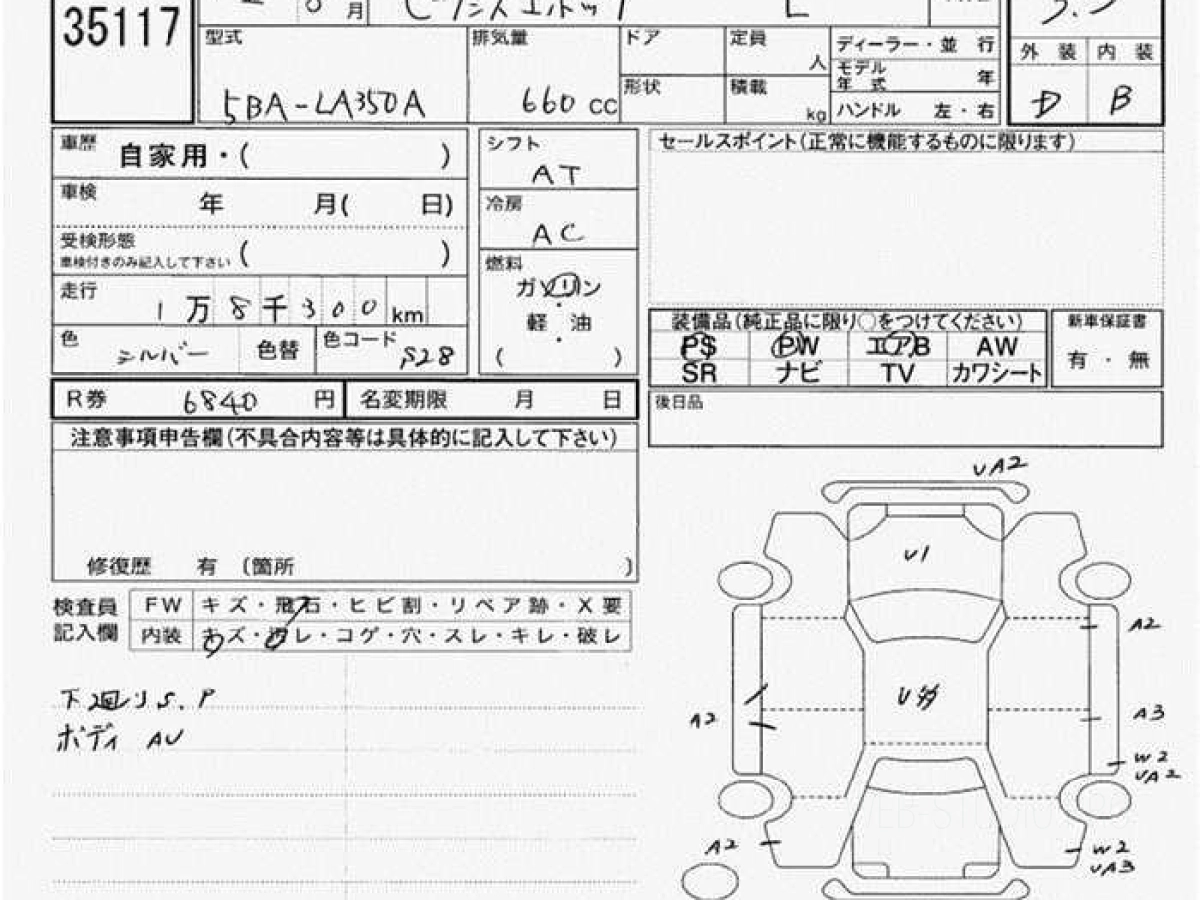 35117
月
L
型式 5BA-LA350A
排気量 660 cc
ドア
定員 人
ディーラー・並 行
形状
積載 kg
モデル年式 年
ハンドル 左・右
外 装 内 装
D B
車歴 自家用・( )
シフト AT
セールスポイント(正常に機能するものに限ります)
車検 年 月( 日)
冷房 AC
受検形態 ( )
車検付きのみ記入して下さい
燃料
ガソリン
軽 油
( )
走行 1万8千300km
色 シルバー 色替 色コード S28
装備品(純正品に限り○をつけてください)
PS PW エアB AW
SR ナビ TV カワシート
新車保証書
有・無
R券 6840 円 名変期限 月 日
後日品
注意事項申告欄(不具合内容等は具体的に記入して下さい)
修復歴 有 〔箇所 )
検査員記入欄
FW キズ・飛石・ヒビ割・リペア跡・X要
内装 キズ・汚レ・コゲ・穴・スレ・キレ・破レ
下回りS.P
ボディ AU
UA2
U1
A2
A2
A3
W2
UA2
A2
W2
UA3